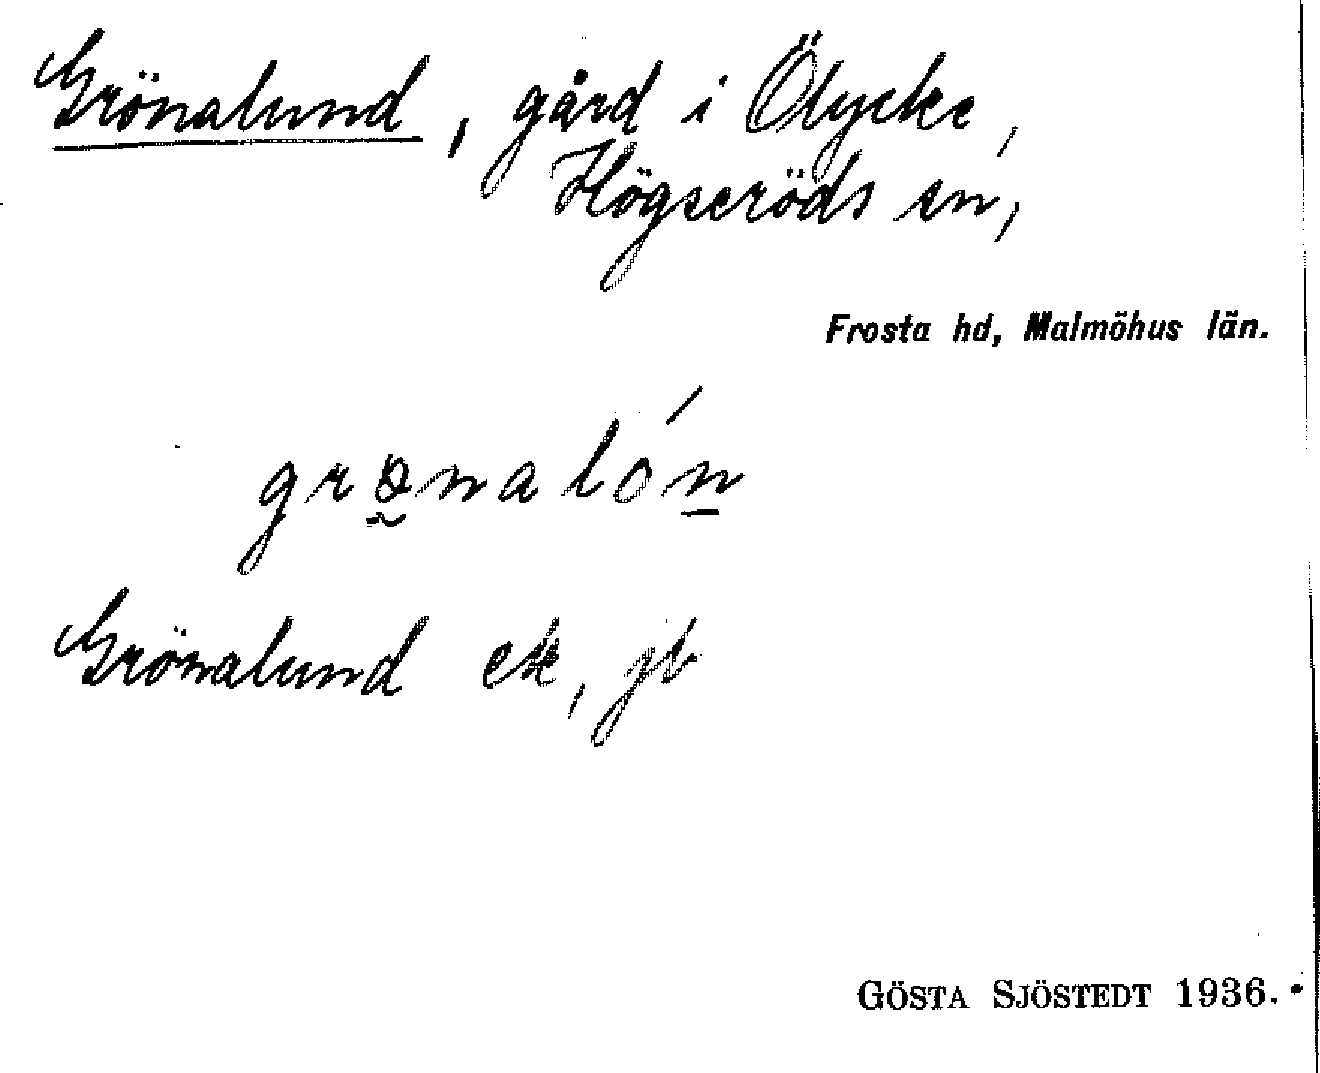 Grönalund, gård i Ölycke,
Högseröds sn,
Frosta hd, Malmöhus län.
grønalón
Grönalund ek, jb
GÖSTA SJÖSTEDT 1936.